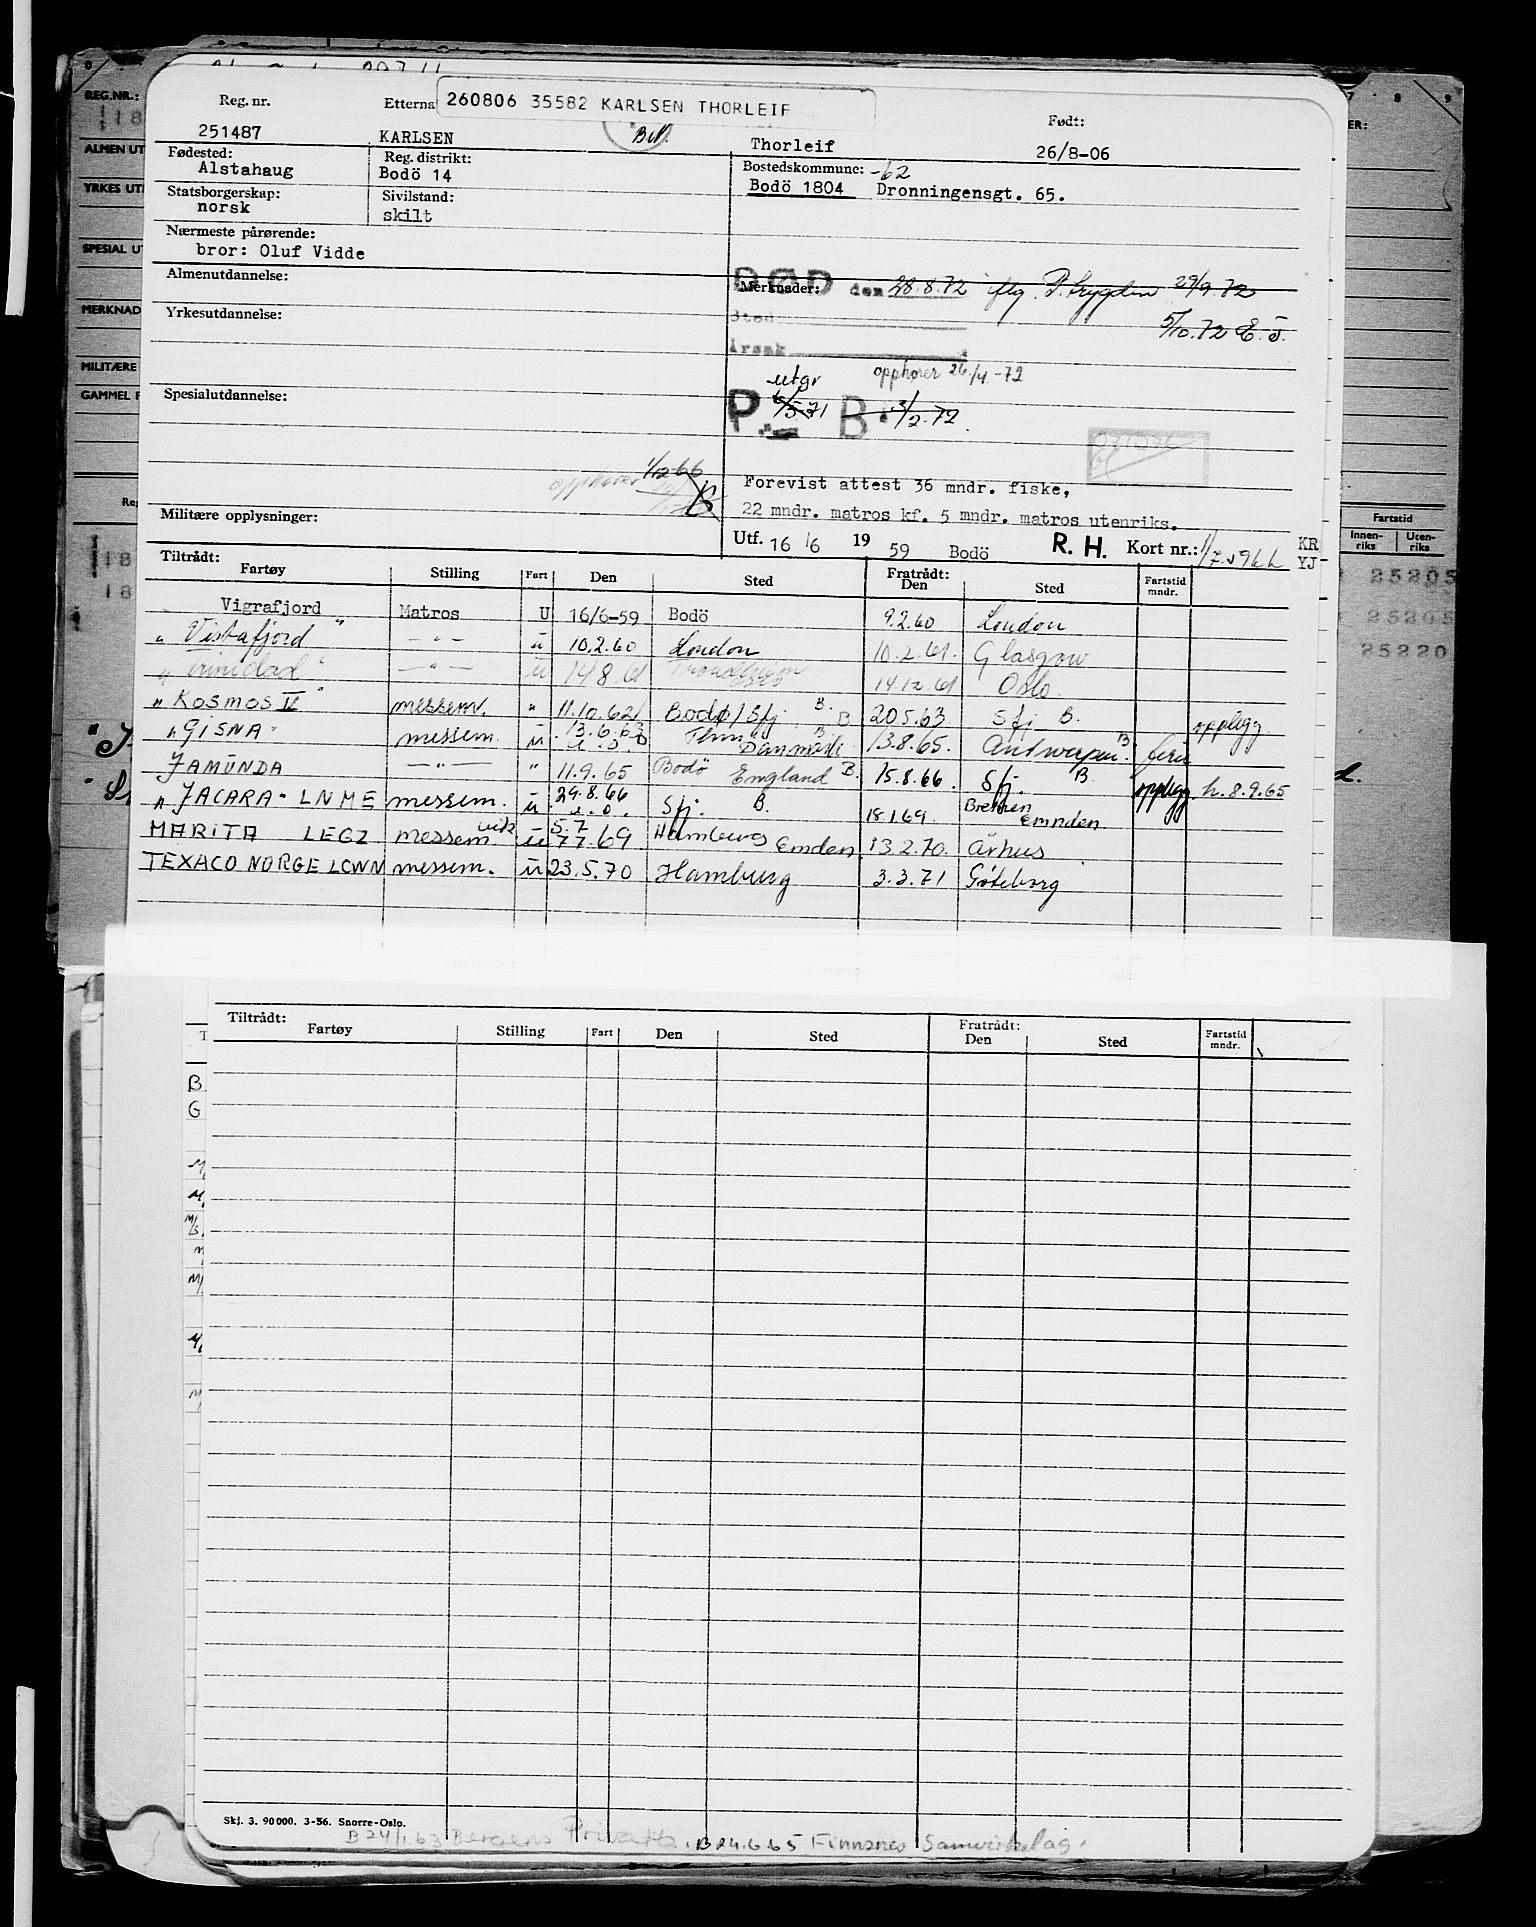 260806 35582 KARLSEN THORLEIF
Reg. nr. Etterna Født:
251487 KARLSEN Thorleif 26/8-06
Fødested: Reg. distrikt: Bostedskommune: -62
Alstahaug Bodö 14 Bodö 1804 Dronningensgt. 65.
Statsborgerskap: Sivilstand:
norsk skilt
Nærmeste pårørende:
bror: Oluf Vidde
Almenutdannelse: Merknader: DØD den 28.8.72 29/9.72
Yrkesutdannelse: Sted 5/10.72 E.J.
Årsak
opphører 26/4-72
utgr
Spesialutdannelse: P. 6/5-71 B. 3/2.72.
opphører 1/12-66
Forevist attest 36 mndr. fiske,
22 mndr. matros kf. 5 mndr. matros utenriks.
Militære opplysninger:
Utf. 16/6 19 59 Bodö R. H. Kort nr.: KR
YJ
Tiltrådt: Fratrådt:
Fartøy Stilling Fart Den Sted Den Sted Fartstid mndr.
Vigrafjord Matros U 16/6-59 Bodö 9.2.60 London
" Vistafjord " — " — ü 10.2.60 London 10.2.61. Glasgow
" Trinidad " — " — ü 14.8.61 Trondheim 14.12.61 Oslo
" KOSMOS V " messem. " 11.10.62 Bodø / Sfj B. B 20.5.63 Sfj B. opplegg
" GISNA " messem. ü 13.6.63 Danmark B 13.8.65. Antwerpen. B ferie
JAMUNDA — " — " 11.9.65 Bodö England B. 15.8.66 Sfj. B. opplegg h. 8.9.65
" JACARA " LNME messem. ü 29.8.66 Sfj. B. 18.1.69. Bremen Emnden
MARITA LEGZ messem. vik ü 5.7 7.7.69 Hamburg Emden 13.2.70. Århus
TEXACO NORGE LCWN messem. ü 23.5.70 Hamburg 3.3.71 Göteborg
Tiltrådt: Fratrådt:
Fartøy Stilling Fart Den Sted Den Sted Fartstid mndr.
Skj. 3. 90000. 3-56. Snorre-Oslo.
B 24/1.63 Bergens Privatb. B 24.6.65 Finnsnes Samvirkelag.
REG.NR.:
ALMEN UT
YRKES UT
SPESIAL UT
MERKNAD
MILITÆRE
GAMMEL F
Fartstid
Innen-riks Uten-riks
25205
25205
25220